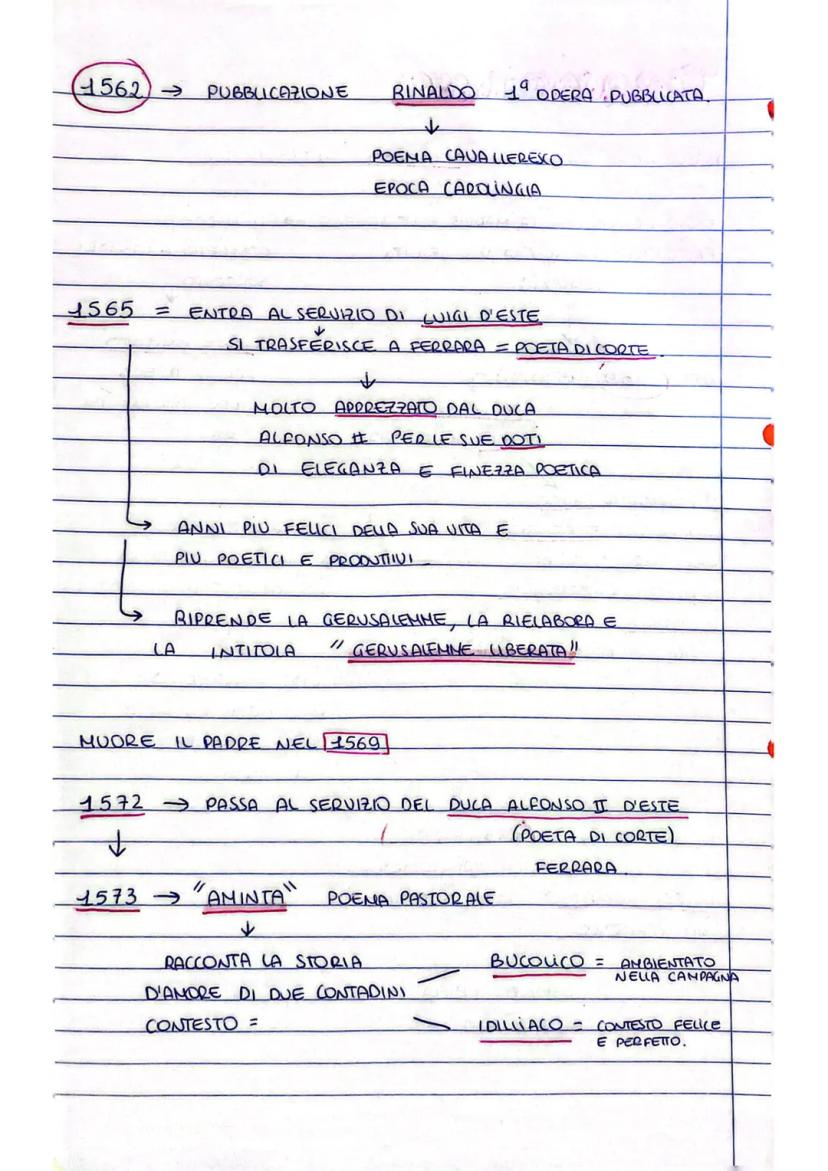 1562 → PUBBLICAZIONE RINALDO 1ª OPERA PUBBLICATA.
↓
POEMA CAVALLERESCO
EPOCA CAROLINGIA
1565 = ENTRA AL SERVIZIO DI LUIGI D'ESTE
↓
SI TRASFERISCE A FERRARA = POETA DI CORTE
↓
MOLTO APPREZZATO DAL DUCA
ALFONSO II PER LE SUE DOTI
DI ELEGANZA E FINEZZA POETICA
→ ANNI PIU FELICI DELLA SUA VITA E
PIU POETICI E PRODUTIVI
→ RIPRENDE LA GERUSALEMME, LA RIELABORA E
LA INTITOLA "GERUSALEMME LIBERATA"
MUORE IL PADRE NEL 1569
1572 → PASSA AL SERVIZIO DEL DUCA ALFONSO II D'ESTE
↓ (POETA DI CORTE)
FERRARA
1573 → "AMINTA" POEMA PASTORALE
↓
RACCONTA LA STORIA
D'AMORE DI DUE CONTADINI
CONTESTO =
BUCOLICO = AMBIENTATO
NELLA CAMPAGNA
IDILLIACO = CONTESTO FELICE
E PERFETTO.